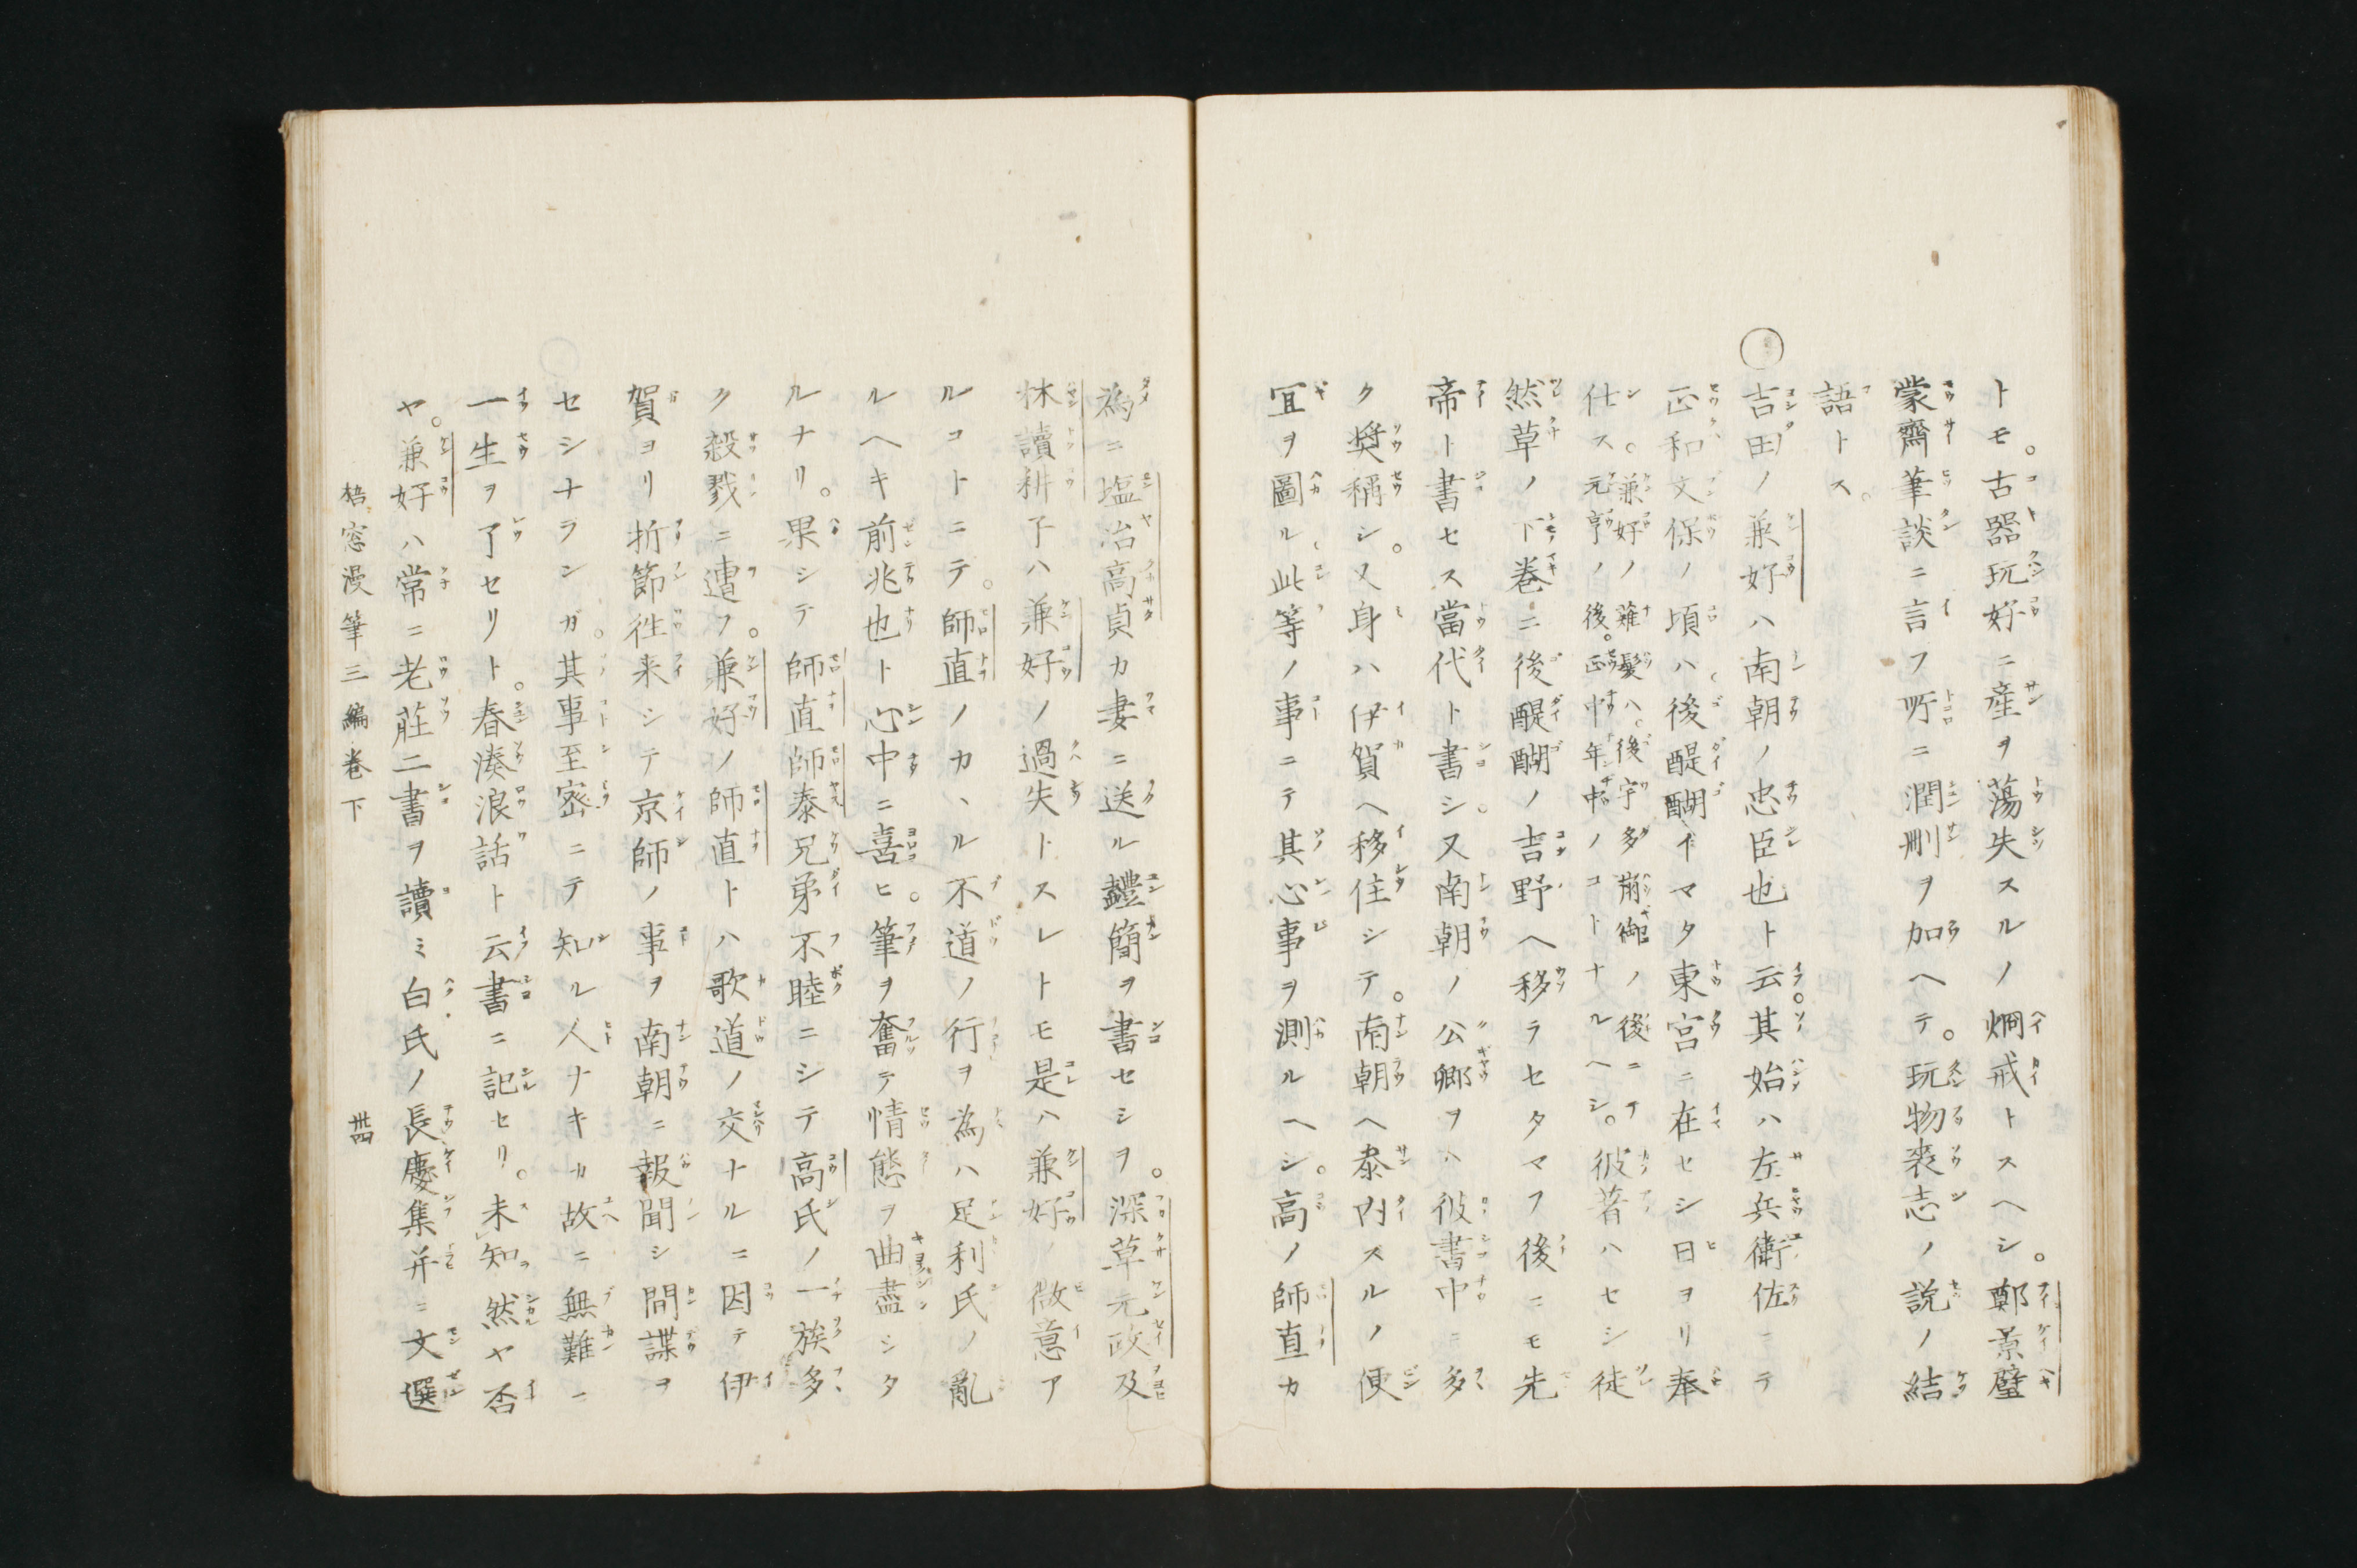 トモ。古器玩好ニ産ヲ蕩失スルノ烱戒トスヘシ。鄭景璧
蒙齋筆談ニ言フ所ニ潤刪ヲ加ヘテ。玩物喪志ノ説ノ結
語トス。
○吉田ノ兼好ハ南朝ノ忠臣也ト云。其始ハ左兵衛佐ニテ
正和文保ノ頃ハ後醍醐イマタ東宮ニ在セシ日ヨリ奉
仕ス。兼好ノ薙髮ハ。後宇多崩御ノ後ニテ元亨ノ後。正中年中ノコトナルヘシ。彼著ハセシ徒
然草ノ下巻ニ後醍醐ノ吉野ヘ移ラセタマフ後ニモ先
帝ト書セス當代ト書シ。又南朝ノ公卿ヲハ彼書中ニ多
ク奨稱シ。又身ハ伊賀ヘ移住シテ。南朝ヘ参内スルノ便
冝ヲ圖ル此等ノ事ニテ其心事ヲ測ルヘシ。高ノ師直カ
為ニ塩冶高貞カ妻ニ送ル豔簡ヲ書セシヲ。深草元政及
林讀耕子ハ兼好ノ過失トスレトモ是ハ兼好ノ微意ア
ルコトニテ。師直ノカヽル不道ノ行ヲ為ハ足利氏ノ亂
ルヘキ前兆也ト心中ニ喜ヒ。筆ヲ奮テ情態ヲ曲盡シタ
ルナリ。果シテ師直師泰兄弟不睦ニシテ高氏ノ一族多
ク殺戮ニ遭フ。兼好ノ師直トハ歌道ノ交ナルニ因テ伊
賀ヨリ折節徃来シテ京師ノ事ヲ南朝ニ報聞シ間諜ヲ
セシナランガ。其事至密ニテ知ル人ナキカ故ニ無難ニ
一生ヲ了セリト。春湊浪話ト云書ニ記セリ。未知然ヤ否
ヤ。兼好ハ常ニ老莊二書ヲ讀ミ白氏ノ長慶集并ニ文選
梧窓漫筆三編巻下 卅四